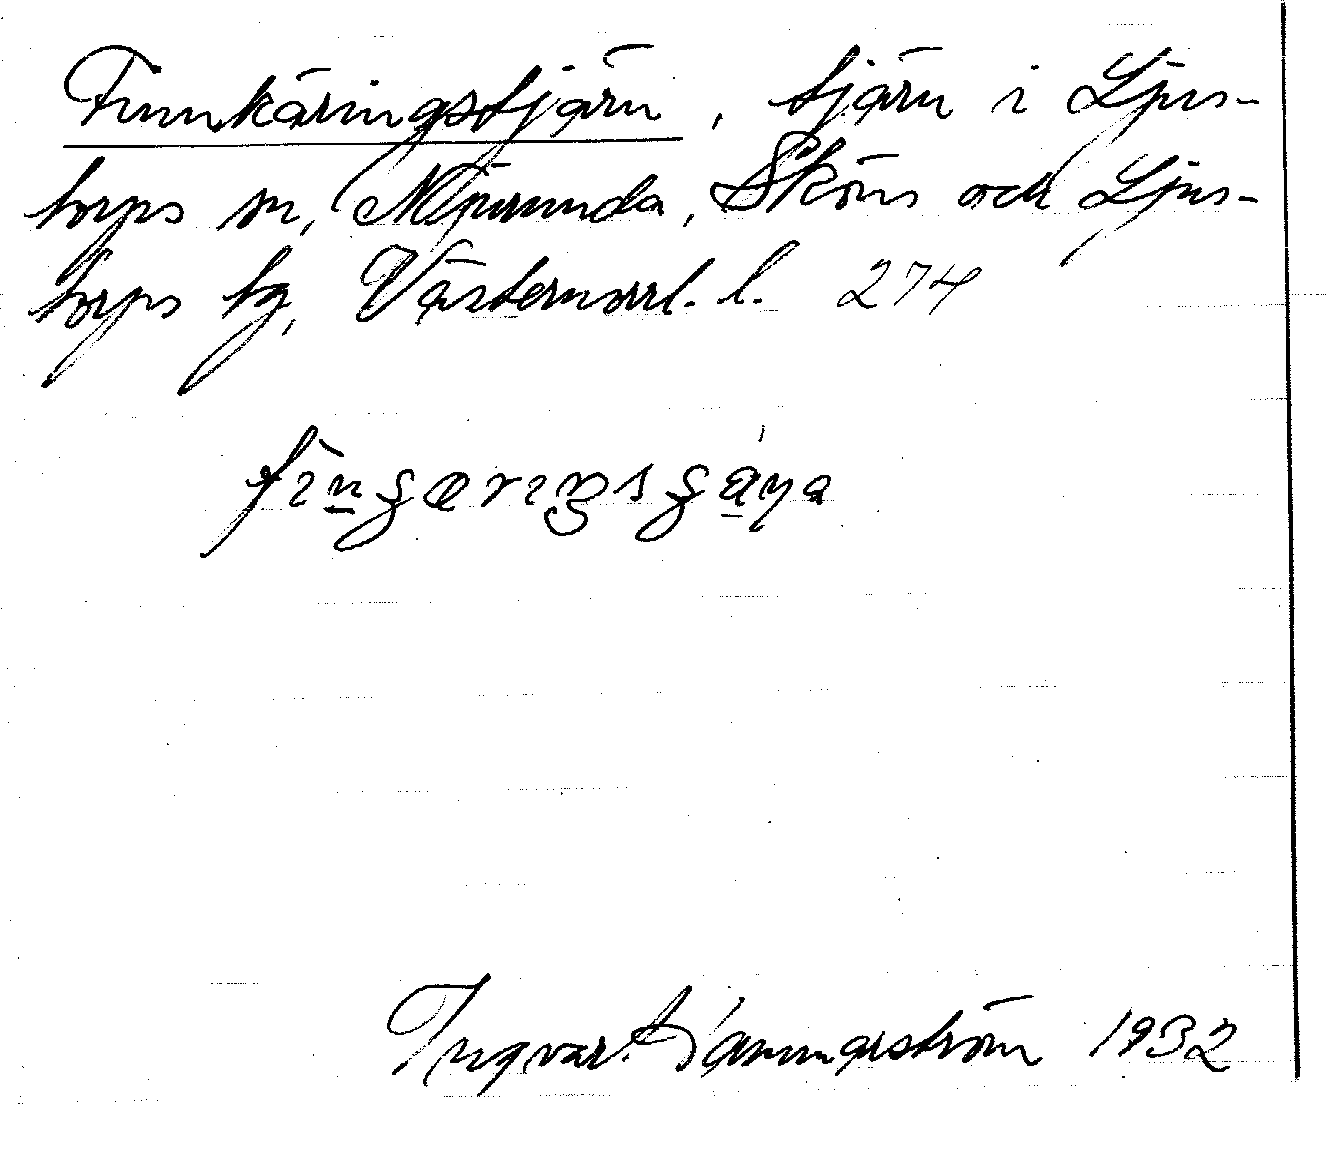 Finnkäringstjärn, tjärn i Ljus-
torps sn, Njurunda, Sköns och Ljus-
torps tg, Västernorrl. l. 274
Ingvar Hammarström 1932